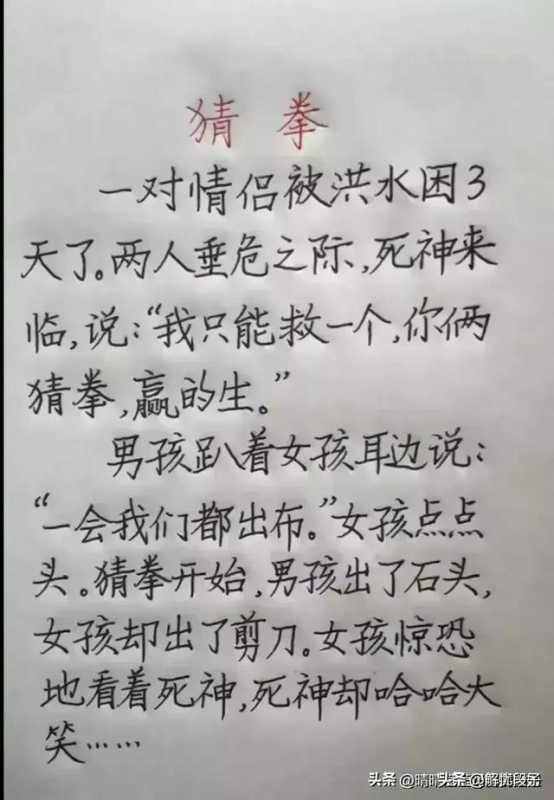 猜拳
一对情侣被洪水困3
天了。两人垂危之际,死神来
临,说:“我只能救一个,你俩
猜拳,赢的生。”
男孩趴着女孩耳边说:
“一会我们都出布。”女孩点点
头。猜拳开始,男孩出了石头,
女孩却出了剪刀。女孩惊恐
地看着死神,死神却哈哈大
笑……
头条 @解忧段子